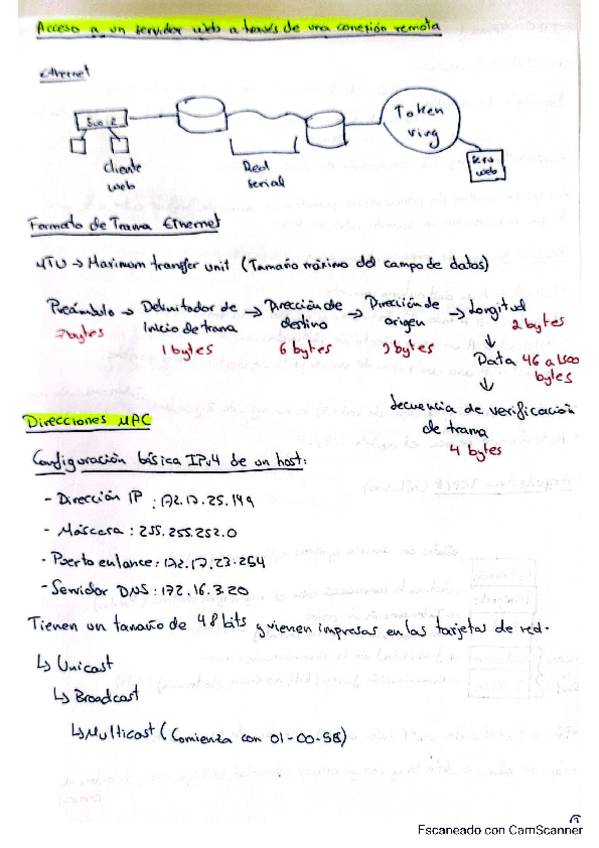 Acceso a un servidor web a través de una conexión remota
Ethernet
Cliente web
Red serial
Token ring
web
Formato de Trama Ethernet
MTU → Maximum transfer unit (Tamaño máximo del campo de datos)
Preámbulo → Delimitador de inicio de trama → Dirección de destino → Dirección de origen → Longitud
7 bytes
1 bytes
6 bytes
bytes
2 bytes
↓
Data 46 a 1500 bytes
↓
Secuencia de verificación de trama
4 bytes
Direcciones MAC
Configuración básica IPv4 de un host:
- Dirección IP : 172.17.25.149
- Máscara : 255.255.252.0
- Puerta enlance: 172.17.23.254
- Servidor DNS : 172.16.3.20
Tienen un tamaño de 48 bits y vienen impresas en las tarjetas de red.
↳ Unicast
↳ Broadcast
↳ Multicast (Comienza con 01-00-5E)
Escaneado con CamScanner